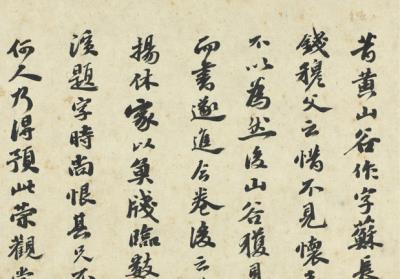 昔黄山谷作字蘇長
錢穆父云惜不見懷
不以為然後山谷獲見
而書遂進今卷後云
揚休家以奠牋臨數
溪題字時尚恨其兄不
何人乃得預此榮觀